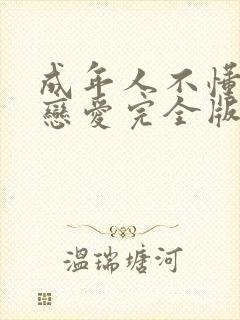 成年人不懂
戀愛完全版
温瑞塘河